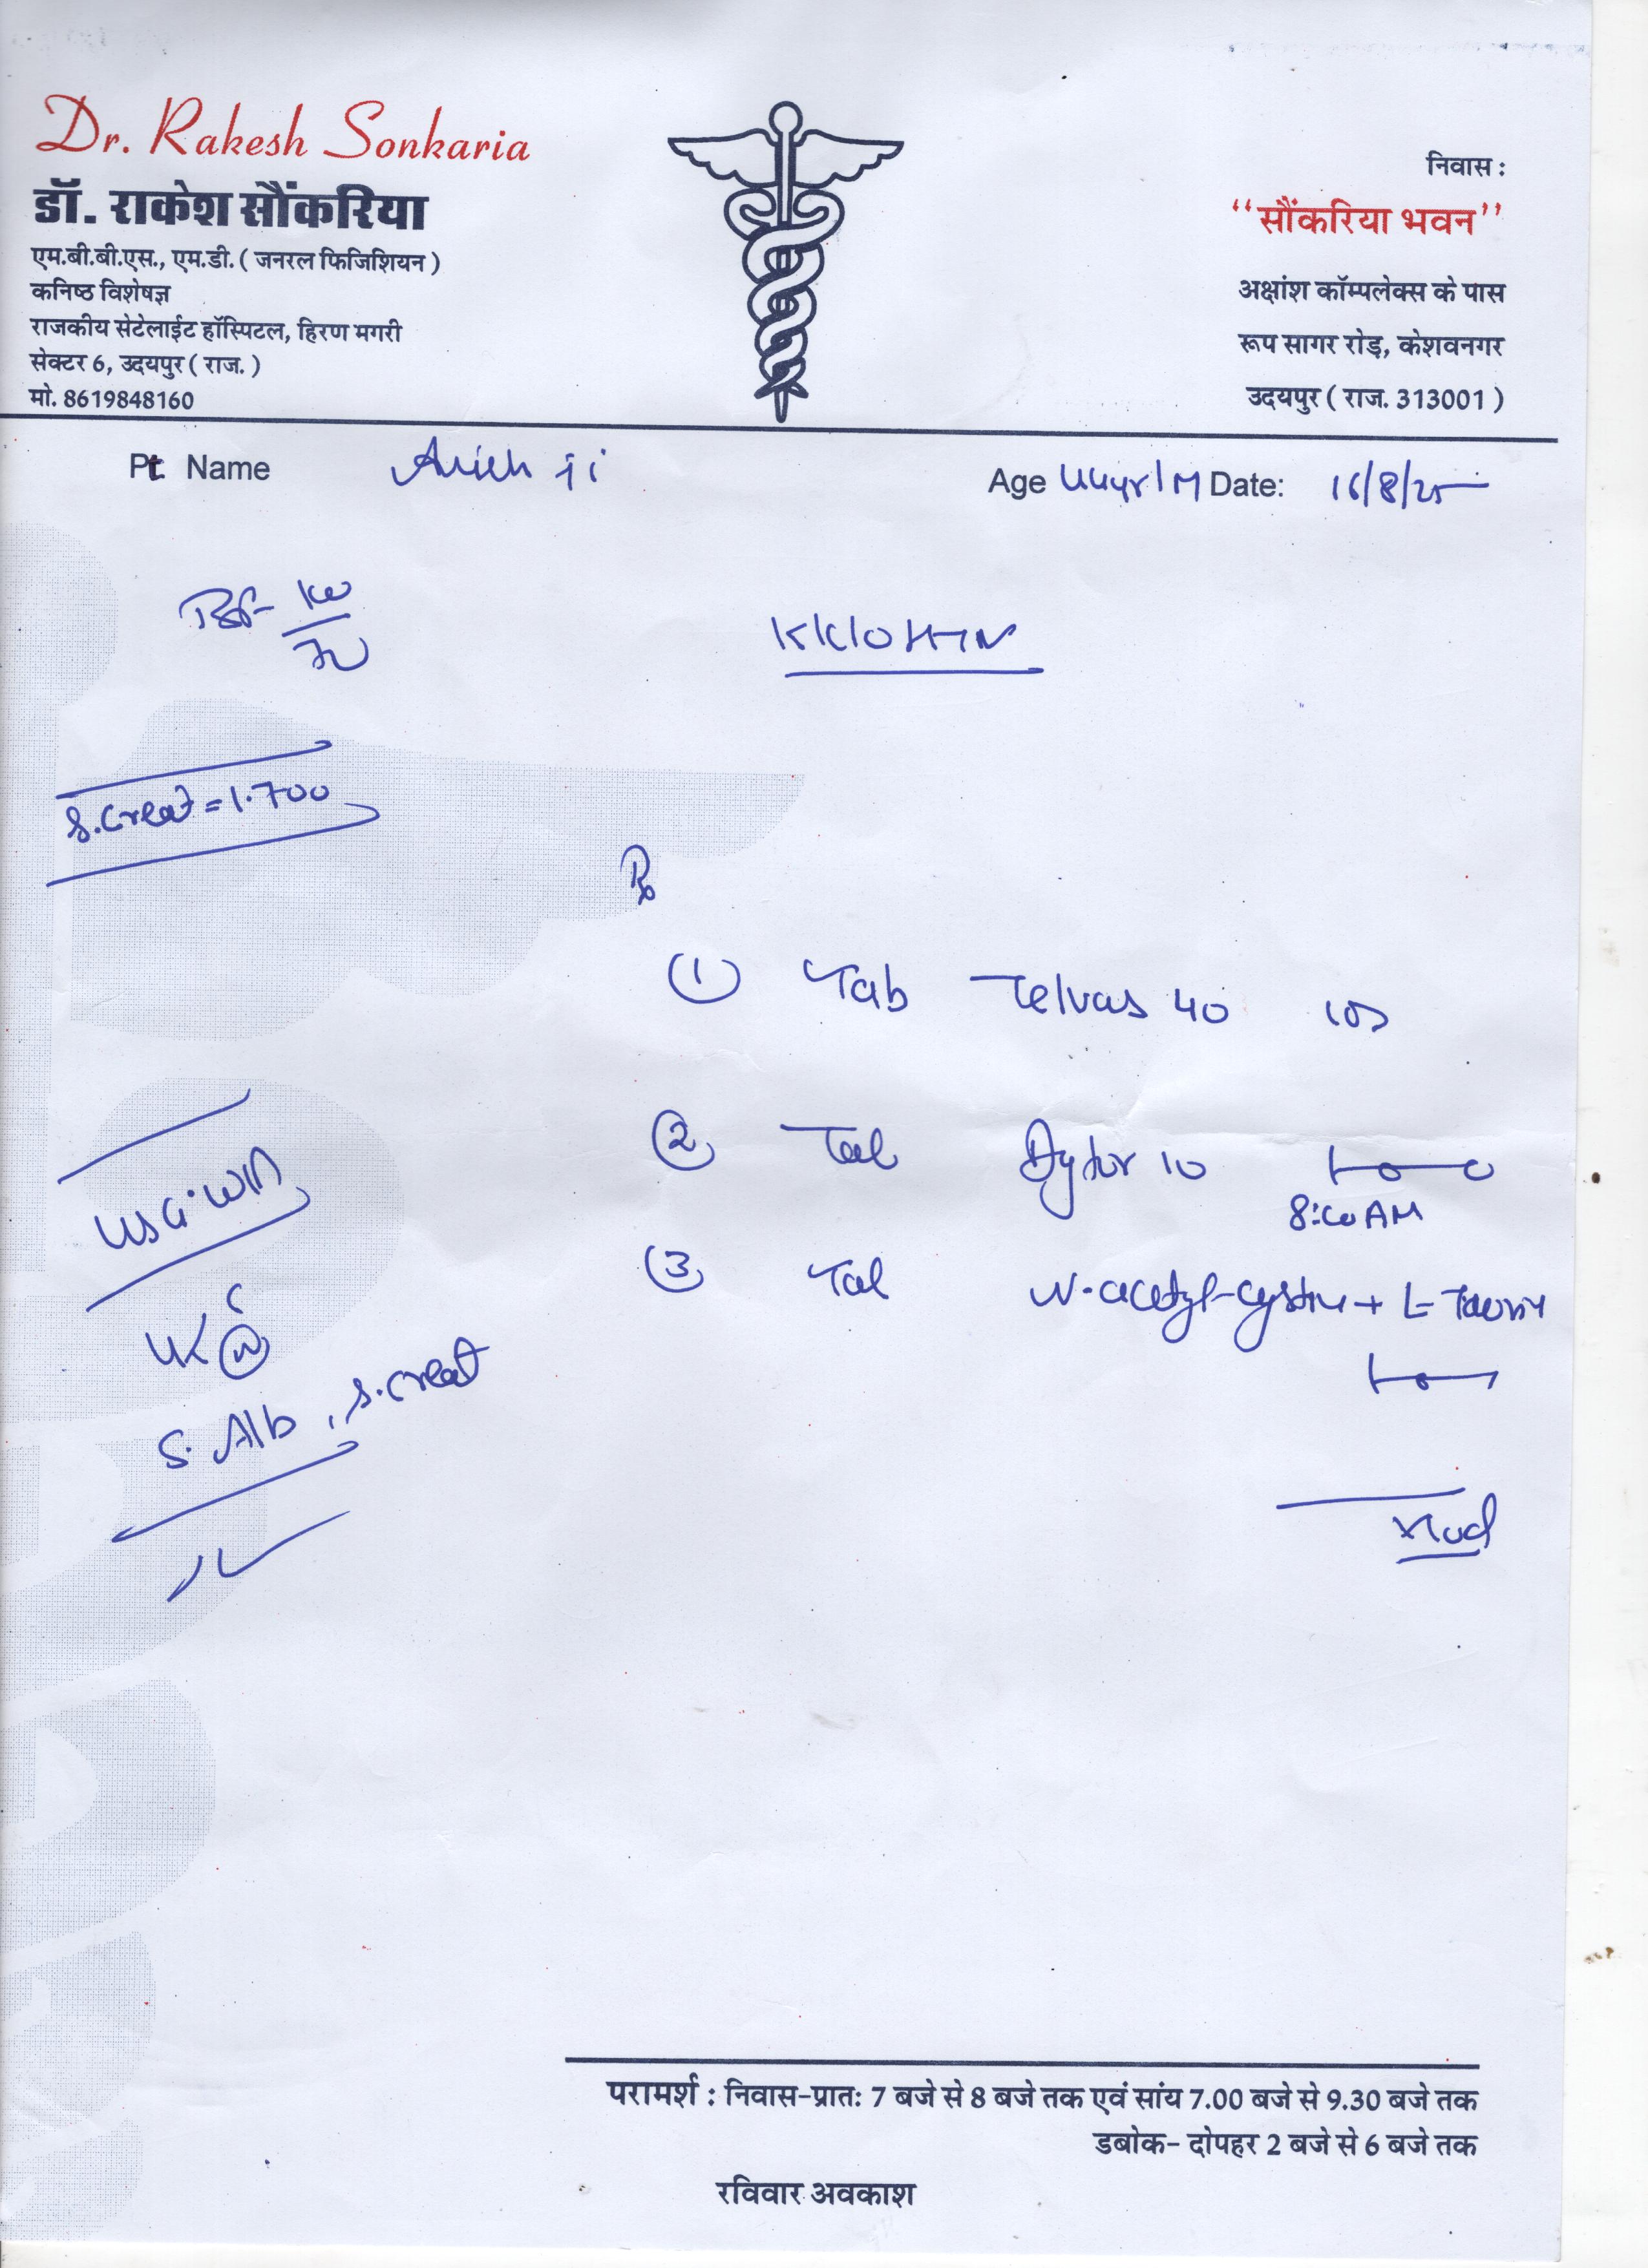 Dr. Rakesh Sonkaria
डॉ. राकेश सौंकरिया
एम.बी.बी.एस., एम.डी. ( जनरल फिजिशियन )
कनिष्ठ विशेषज्ञ
राजकीय सेटेलाईट हॉस्पिटल, हिरण मगरी
सेक्टर 6, उदयपुर ( राज. )
मो. 8619848160
निवास :
“सौंकरिया भवन”
अक्षांश कॉम्पलेक्स के पास
रूप सागर रोड़, केशवनगर
उदयपुर ( राज. 313001 )
Pt. Name ji
Age 44yr/M Date: 16/8/25
K/C/O HTN
S.Creat = 1.700
Rx
① Tab Telvas 40 1OD
② Tab Dytor 10 1-0-0
8:00 AM
③ Tab N-acetyl-cystine + L-Taurine
1-0-1
USG-W/A
S. Alb, S.creat
परामर्श : निवास-प्रातः 7 बजे से 8 बजे तक एवं सांय 7.00 बजे से 9.30 बजे तक
डबोक- दोपहर 2 बजे से 6 बजे तक
रविवार अवकाश